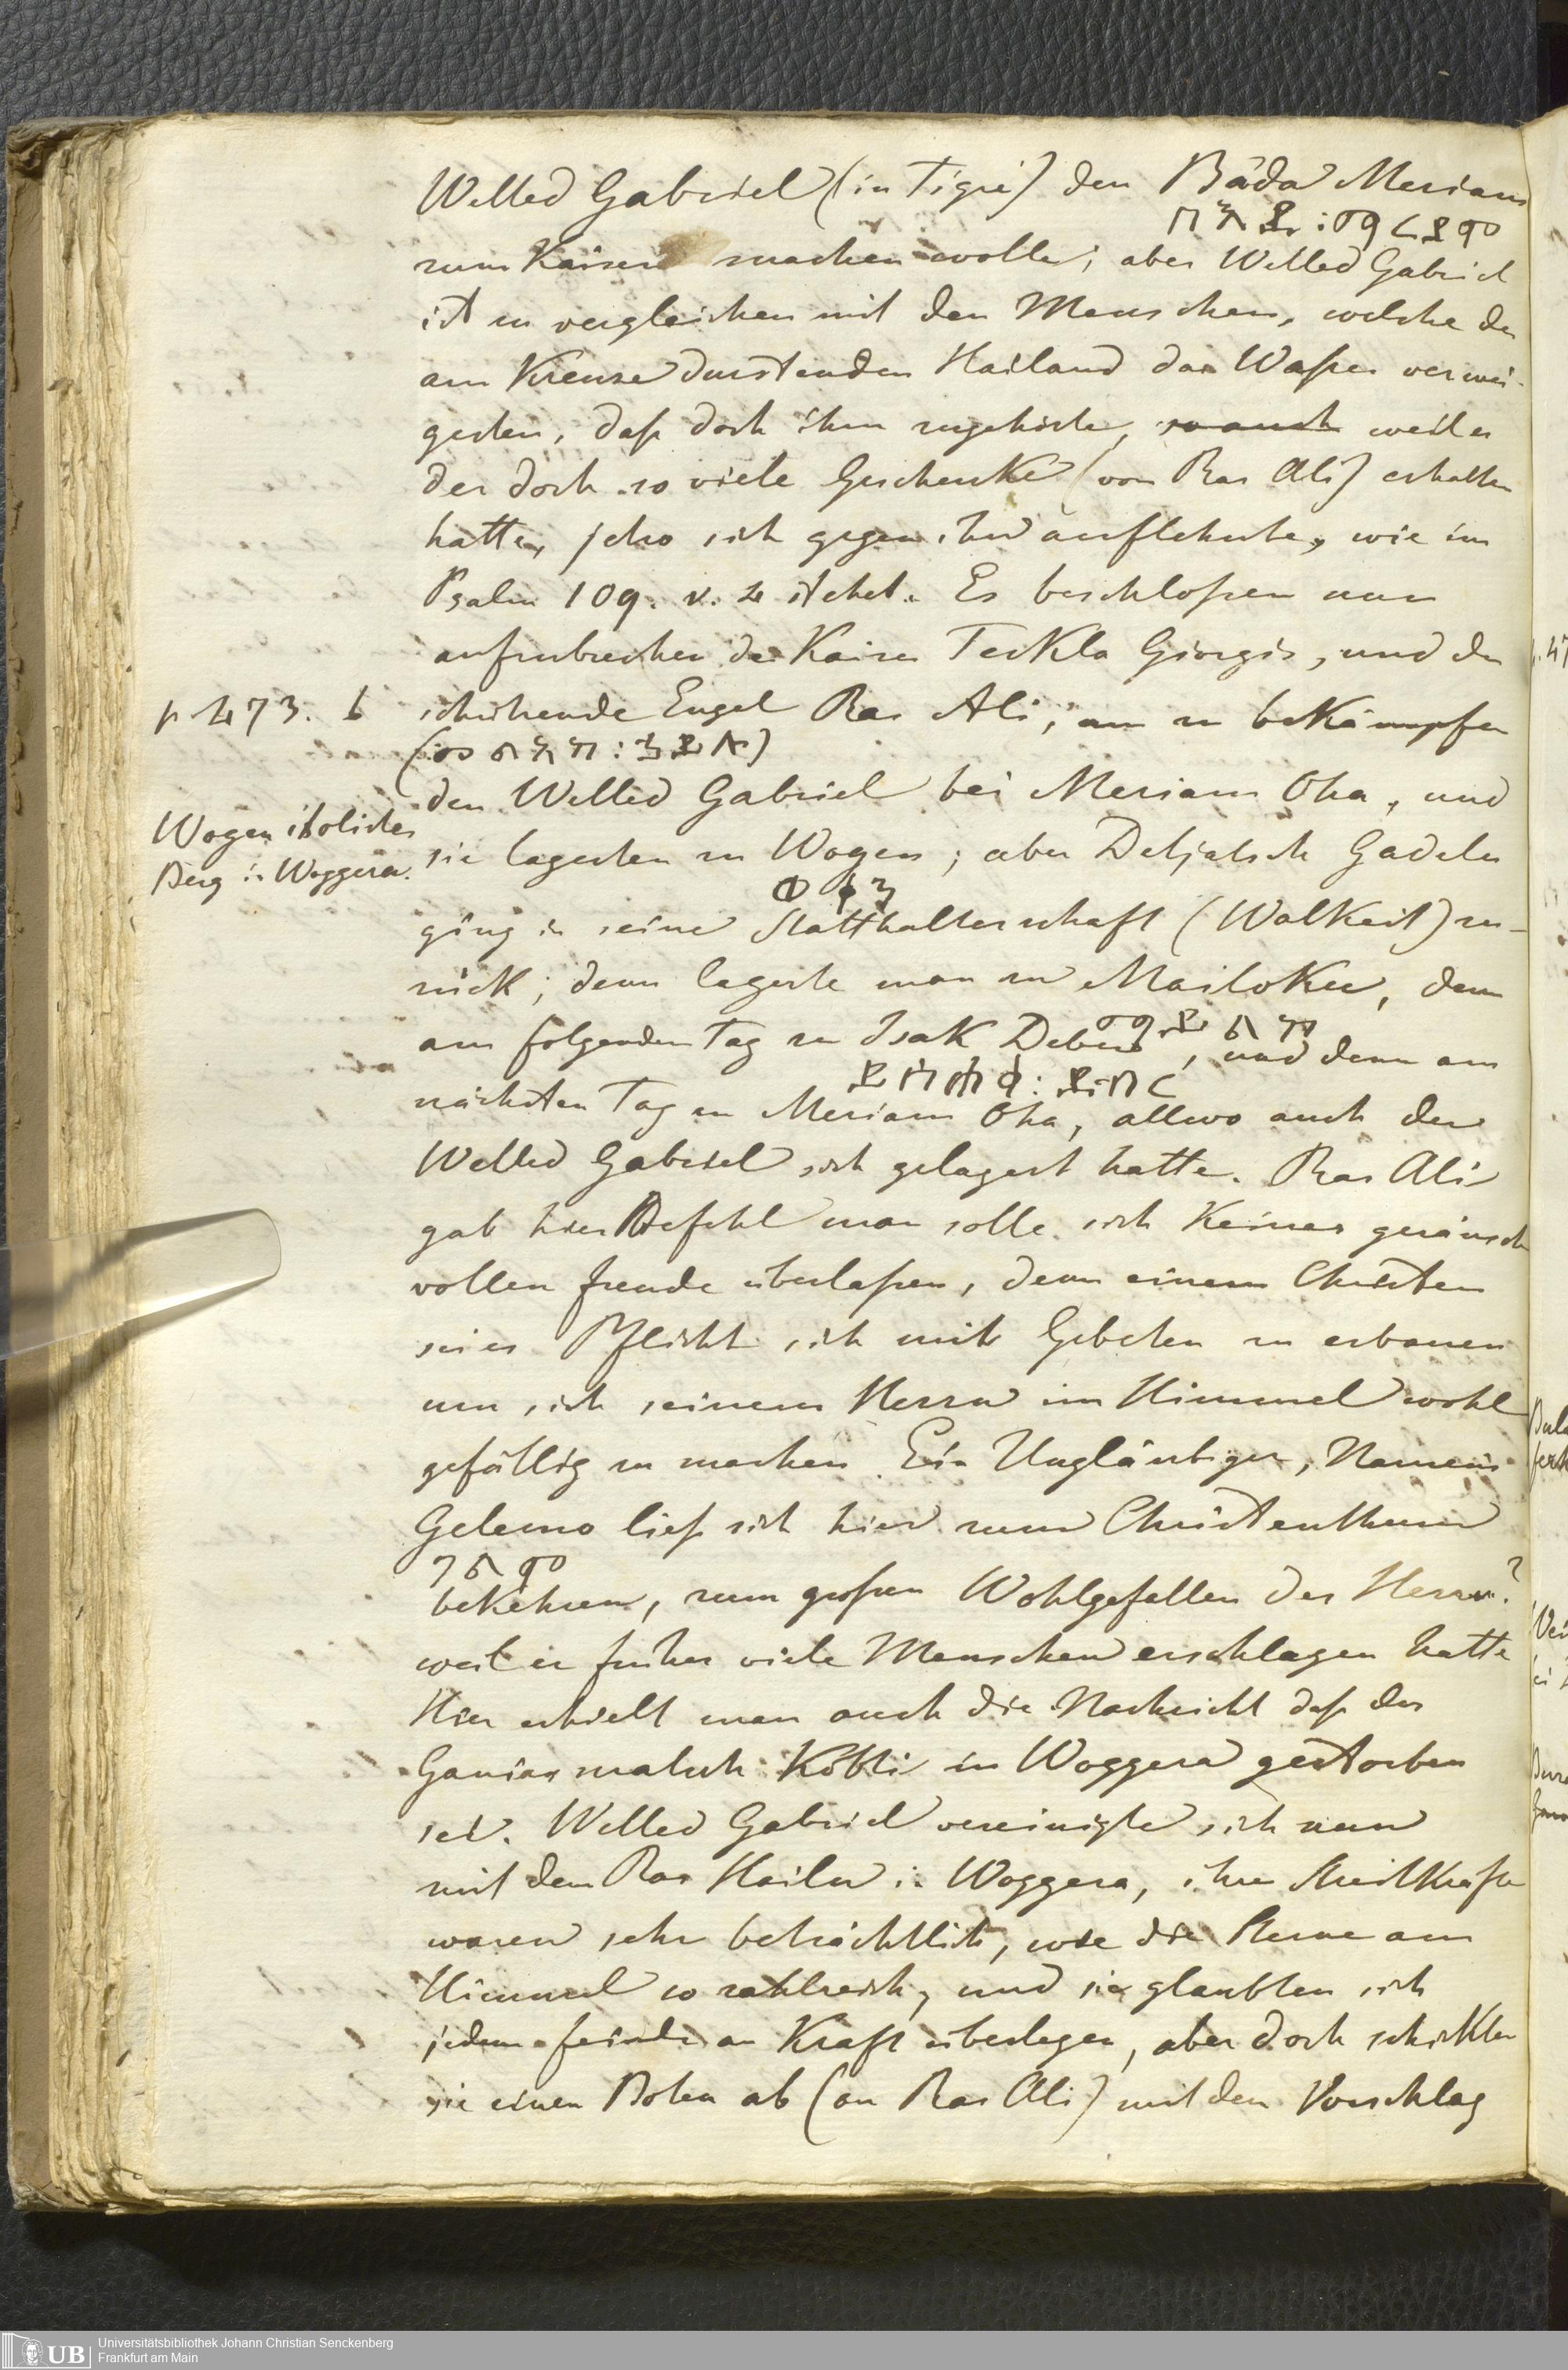 Welled Gabriel (in Tigré) den Bäda Meriam
zum Kaiser machen wolle; aber Welled Gabriel
ist zu vergleichen mit den Menschen, welche den
am Kreuze durstenden Hailand das Waßer verwei-
gerten, daß doch ihm zugehörte, so auch weil er
der doch so viele Geschenke (von Ras Ali) erhalten
hatte, jetzo sich gegen ihn auflehnte, wie im
Psalm 109. v. 4 stehet. Es beschloßen nun
aufzubrechen der Kaiser Teckla Giorgis, und der
p 473. b schützende Engel Ras Ali, um zu bekämpfen
den Welled Gabriel bei Meriam Oha, und
Wogen östliches
Berg in Woggera.
sie lagerten zu Wogen; aber Detjatsch Gadelu
ወቀን
ging in seine Statthalterschaft (Walkeit) zu-
rück; dann lagerte man zu Mailoku, dann
am folgenden Tag zu Isak Deber, und dann am
ይስሐቅ: ደብር
nächsten Tag zu Meriam Oha, allwo auch der
Welled Gabriel sich gelagert hatte. Ras Ali
gab hier Befehl man solle sich keiner geräusch
vollen Freude überlaßen, denn einem Christen
sei es Pflicht sich mit Gebeten zu erbauen
um sich seinem Herrn im Himmel wohl
gefällig zu machen. Ein Ungläubiger, Namens
Gelemo ließ sich hier zum Christenthum
bekehren, zum großen Wohlgefallen des Herrn?
weil er früher viele Menschen erschlagen hatte
Hier erhielt man auch die Nachricht daß der
Ganias matsch Köbti in Woggera gestorben
sei. Welled Gabriel vereinigte sich nun
mit dem Ras Hailu in Woggera, ihre Streitkräfte
waren sehr beträchtlich, wie die Sterne am
Himmel so zahlreich, und sie glaubten sich
jedem Feinde an Kraft überlegen, aber doch schickten
sie einen Boten ab (an Ras Ali) mit dem Vorschlag
Universitätsbibliothek Johann Christian Senckenberg
Frankfurt am Main